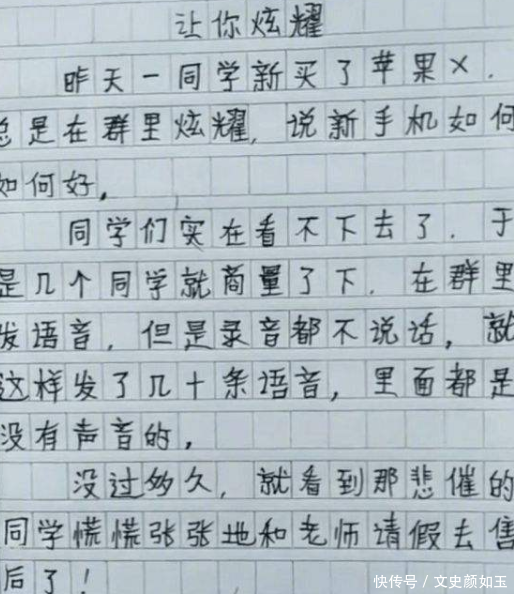 让你炫耀
昨天一同学新买了苹果X.
总是在群里炫耀,说新手机如何
如何好,
同学们实在看不下去了.于
是几个同学就商量了下.在群里
发语音,但是录音都不说话,就
这样发了几十条语音,里面都是
没有声音的,
没过多久,就看到那悲催的
同学慌慌张张地和老师请假去售
后了!
快传号/文史颜如玉